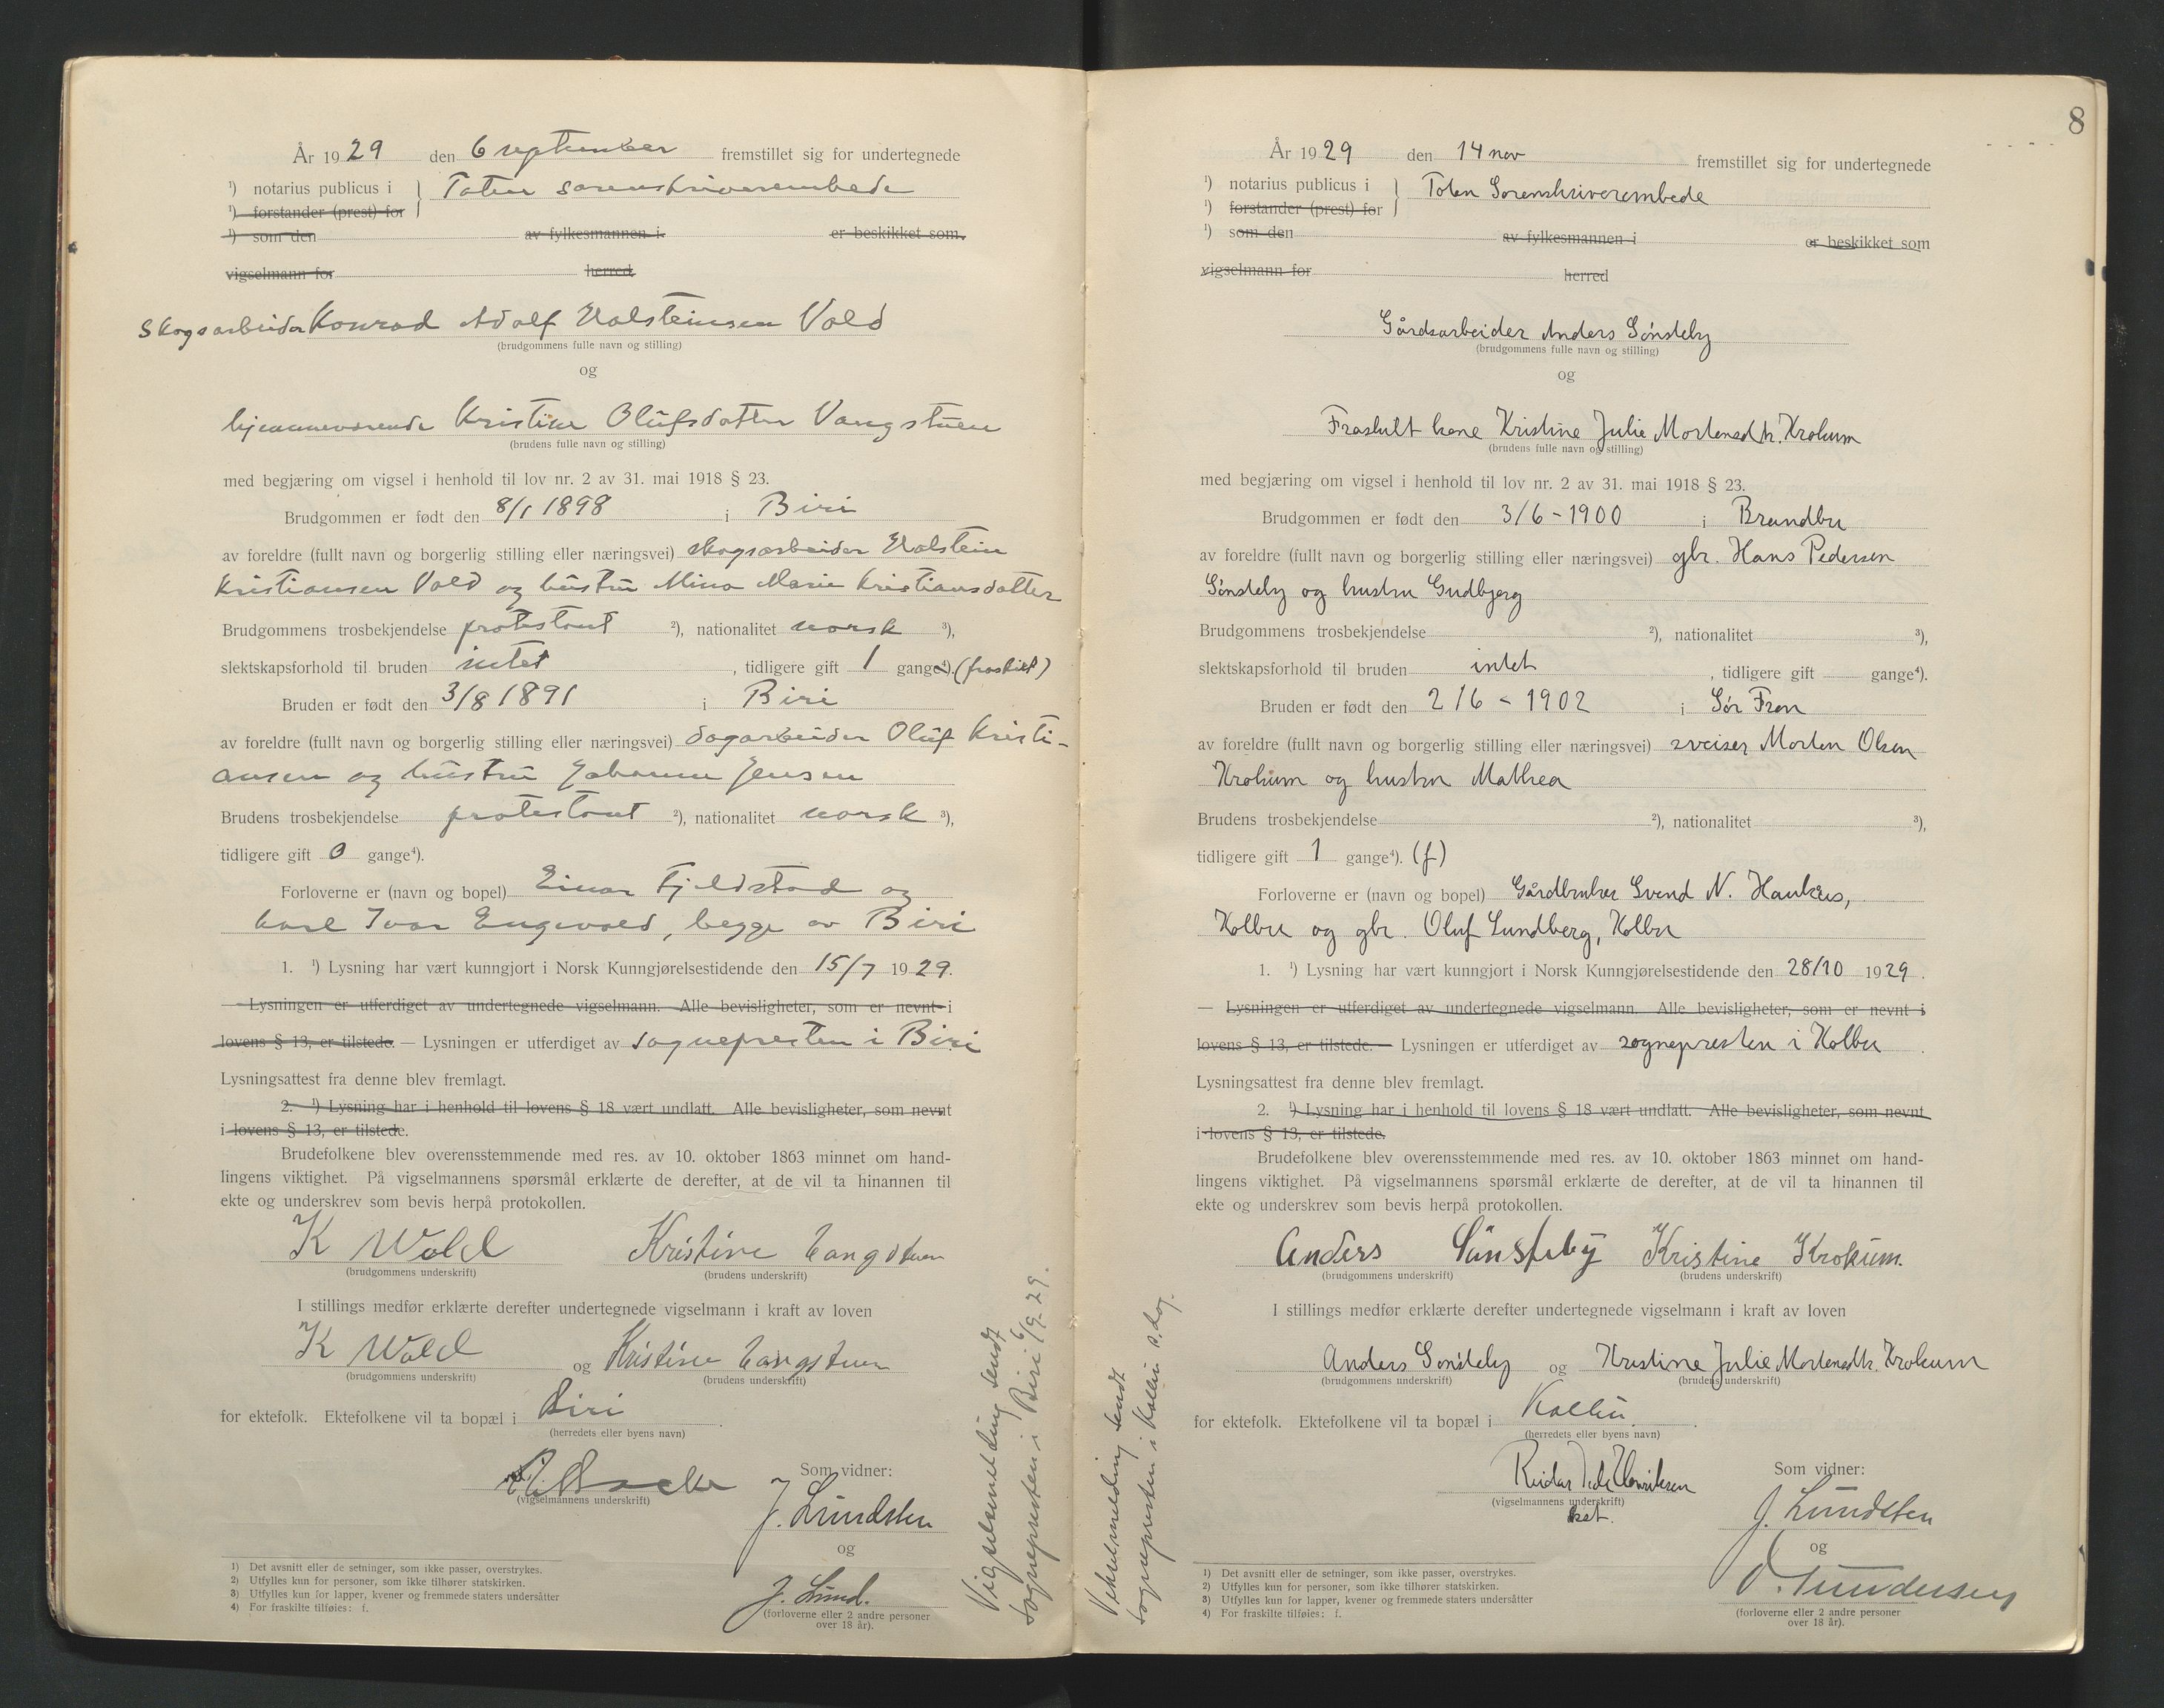 År 1929 den 6 september fremstillet sig for undertegnede
¹) notarius publicus i } Toten sorenskriverembede
¹) forstander (prest) for
¹) som den av fylkesmannen i er beskikket som
vigselmann for herred
Skogsarbeider Konrad Adolf Halsteinsen Vold
(brudgommens fulle navn og stilling)
og
hjemmeværende Kristine Olufsdatter Vangstuen
(brudens fulle navn og stilling)
med begjæring om vigsel i henhold til lov nr. 2 av 31. mai 1918 § 23.
Brudgommen er født den 8/1 1898 i Biri
av foreldre (fullt navn og borgerlig stilling eller næringsvei) skogsarbeider Halstein
Kristiansen Vold og hustru Mina Marie Kristiansdatter
Brudgommens trosbekjendelse protestant ²), nationalitet norsk ³),
slektskapsforhold til bruden intet , tidligere gift 1 gange⁴). (fraskilt)
Bruden er født den 3/8 1891 i Biri
av foreldre (fullt navn og borgerlig stilling eller næringsvei) dagarbeider Oluf Kristi-
ansen og hustru Johanne Jensen
Brudens trosbekjendelse protestant ²), nationalitet norsk ³),
tidligere gift 0 gange⁴).
Forloverne er (navn og bopel) Einar Fjeldstad og
Karl Ivar Engevold, begge av Biri
1. ¹) Lysning har vært kunngjort i Norsk Kunngjørelsestidende den 15/7 1929.
— Lysningen er utferdiget av undertegnede vigselmann. Alle bevisligheter, som er nevnt i
lovens § 13, er tilstede. — Lysningen er utferdiget av sognepresten i Biri
Lysningsattest fra denne blev fremlagt.
2. ¹) Lysning har i henhold til lovens § 18 vært undlatt. Alle bevisligheter, som nevnt
i lovens § 13, er tilstede.
Brudefolkene blev overensstemmende med res. av 10. oktober 1863 minnet om hand-
lingens viktighet. På vigselmannens spørsmål erklærte de derefter, at de vil ta hinannen til
ekte og underskrev som bevis herpå protokollen.
K Wold Kristine Vangstuen
(brudgommens underskrift) (brudens underskrift)
I stillings medfør erklærte derefter undertegnede vigselmann i kraft av loven
K Wold og Kristine Vangstuen
(brudgommens underskrift) (brudens underskrift)
for ektefolk. Ektefolkene vil ta bopæl i Biri .
(herredets eller byens navn)
Som vidner:
(vigselmannens underskrift)
J. Lundsten
og
J. Lund.
(forloverne eller 2 andre personer
over 18 år).
1) Det avsnitt eller de setninger, som ikke passer, overstrykes.
2) Utfylles kun for personer, som ikke tilhører statskirken.
3) Utfylles kun for lapper, kvener og fremmede staters undersåtter
4) For fraskilte tilføies: f.
Vigselsmelding sendt
sognepresten i Biri 6/9-29.
8
År 1929 den 14 nov fremstillet sig for undertegnede
¹) notarius publicus i } Toten Sorenskriverembede
¹) forstander (prest) for
¹) som den av fylkesmannen i er beskikket som
vigselmann for herred
Gårdsarbeider Anders Sønsteby
(brudgommens fulle navn og stilling)
og
Fraskilt kone Kristine Julie Mortensdtr. Krokum
(brudens fulle navn og stilling)
med begjæring om vigsel i henhold til lov nr. 2 av 31. mai 1918 § 23.
Brudgommen er født den 3/6 - 1900 i Brandbu
av foreldre (fullt navn og borgerlig stilling eller næringsvei) gbr. Hans Pedersen
Sønsteby og hustru Gudbjørg
Brudgommens trosbekjendelse ²), nationalitet ³),
slektskapsforhold til bruden intet , tidligere gift gange⁴).
Bruden er født den 2/6 - 1902 i Sør Fron
av foreldre (fullt navn og borgerlig stilling eller næringsvei) sveiser Morten Olsen
Krokum og hustru Mathea
Brudens trosbekjendelse ²), nationalitet ³),
tidligere gift 1 gange⁴). (f)
Forloverne er (navn og bopel) Gårdbruker Svend N. ,
Kolbu og gbr. Oluf Lundberg, Kolbu
1. ¹) Lysning har vært kunngjort i Norsk Kunngjørelsestidende den 28/10 1929 .
— Lysningen er utferdiget av undertegnede vigselmann. Alle bevisligheter, som er nevnt i
lovens § 13, er tilstede. — Lysningen er utferdiget av sognepresten i Kolbu .
Lysningsattest fra denne blev fremlagt.
2. ¹) Lysning har i henhold til lovens § 18 vært undlatt. Alle bevisligheter, som nevnt
i lovens § 13, er tilstede.
Brudefolkene blev overensstemmende med res. av 10. oktober 1863 minnet om hand-
lingens viktighet. På vigselmannens spørsmål erklærte de derefter, at de vil ta hinannen til
ekte og underskrev som bevis herpå protokollen.
Anders Sønsteby Kristine Krokum.
(brudgommens underskrift) (brudens underskrift)
I stillings medfør erklærte derefter undertegnede vigselmann i kraft av loven
Anders Sønsteby og Kristine Julie Mortensdtr. Krokum
(brudgommens underskrift) (brudens underskrift)
for ektefolk. Ektefolkene vil ta bopæl i Kolbu. .
(herredets eller byens navn)
Reidar Henriksen Som vidner:
(vigselmannens underskrift)
J. Lundsten
og
(forloverne eller 2 andre personer
over 18 år).
1) Det avsnitt eller de setninger, som ikke passer, overstrykes.
2) Utfylles kun for personer, som ikke tilhører statskirken.
3) Utfylles kun for lapper, kvener og fremmede staters undersåtter
4) For fraskilte tilføies: f.
sendt
sognepresten i Kolbu s. dag.